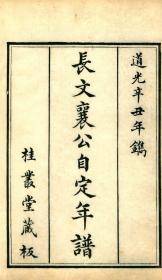 道光辛丑年鐫
長文襄公自定年譜
桂叢堂藏板